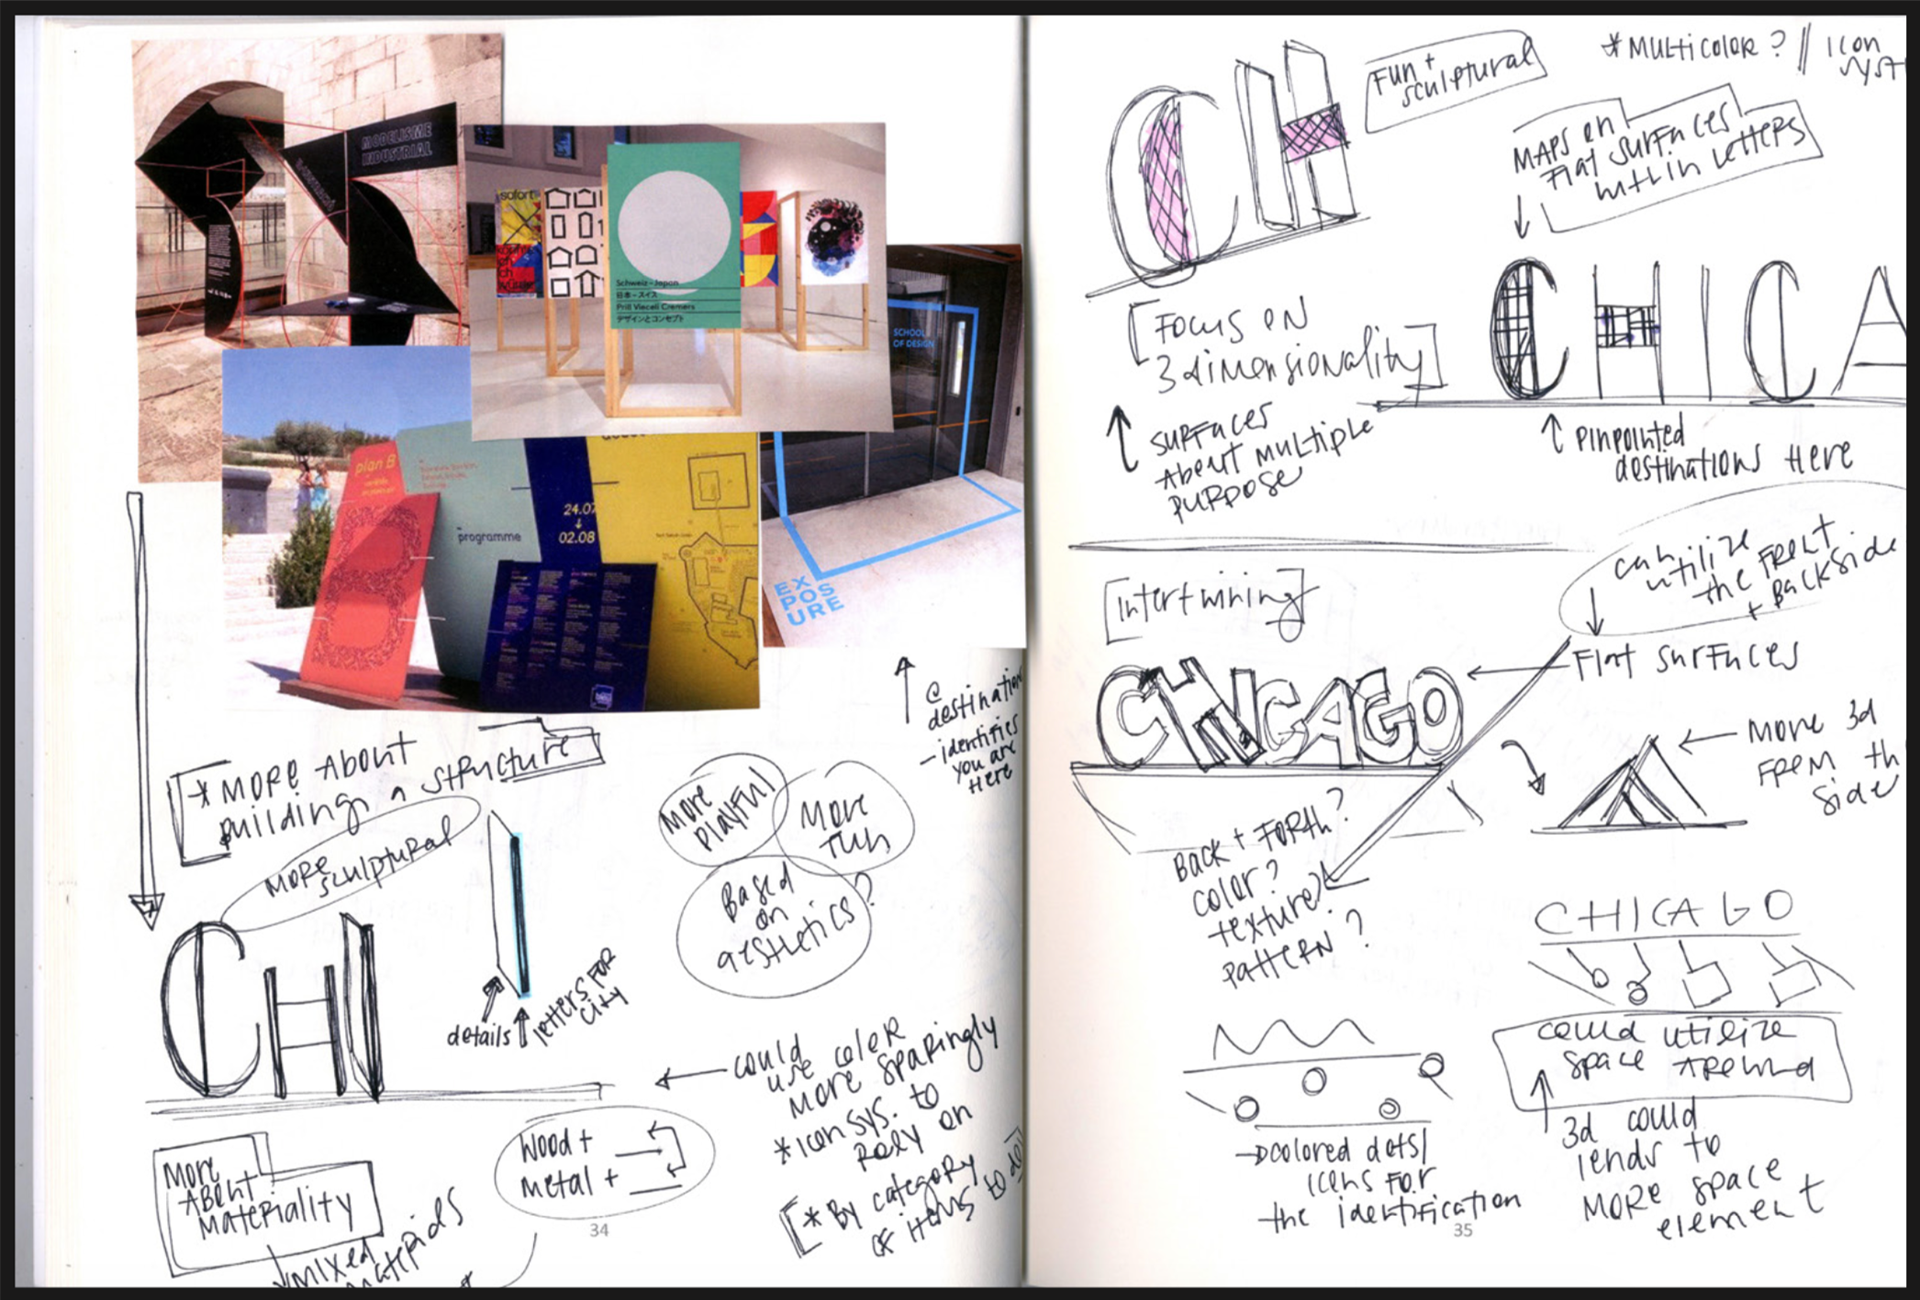 MODELISME
INDUSTRIAL
sofort
Schweiz–Japan
日本–スイス
Prill Vieceli Cremers
デザインとコンセプト
SCHOOL
OF DESIGN
plan B
programme
24.07
↓
02.08
EX
POS
URE
@
destination
- identifies
you are
Here
* MORE ABOUT
Building a structure
MORE
sculptural
More
playful
More
Fun
Based
on
aesthetics?
CHI
details
letters FOR
City
could
use color
MORE sparingly
* icon sys. to
Rely on
* By category
OF items to
wood +
metal +
More
ABOUT
Materiality
mixed
materials
34
CH
Fun +
sculptural
* MULTICOLOR ? // Icon
syst
MAPS ON
Flat surfaces
within letters
FOCUS ON
3 dimensionality
SURFACES
ABOUT MULTIPLE
PURPOSE
CHICA
PINPOINTED
destinations Here
Intertwining
can utilize
the FRONT
+ Backside
Flat surfaces
CHICAGO
More 3d
FROM th
side
Back + Forth?
color?
texture?
pattern?
CHICAGO
could utilize
space around
3d could
lends to
MORE space
element
colored dots/
icons for
the identification
35